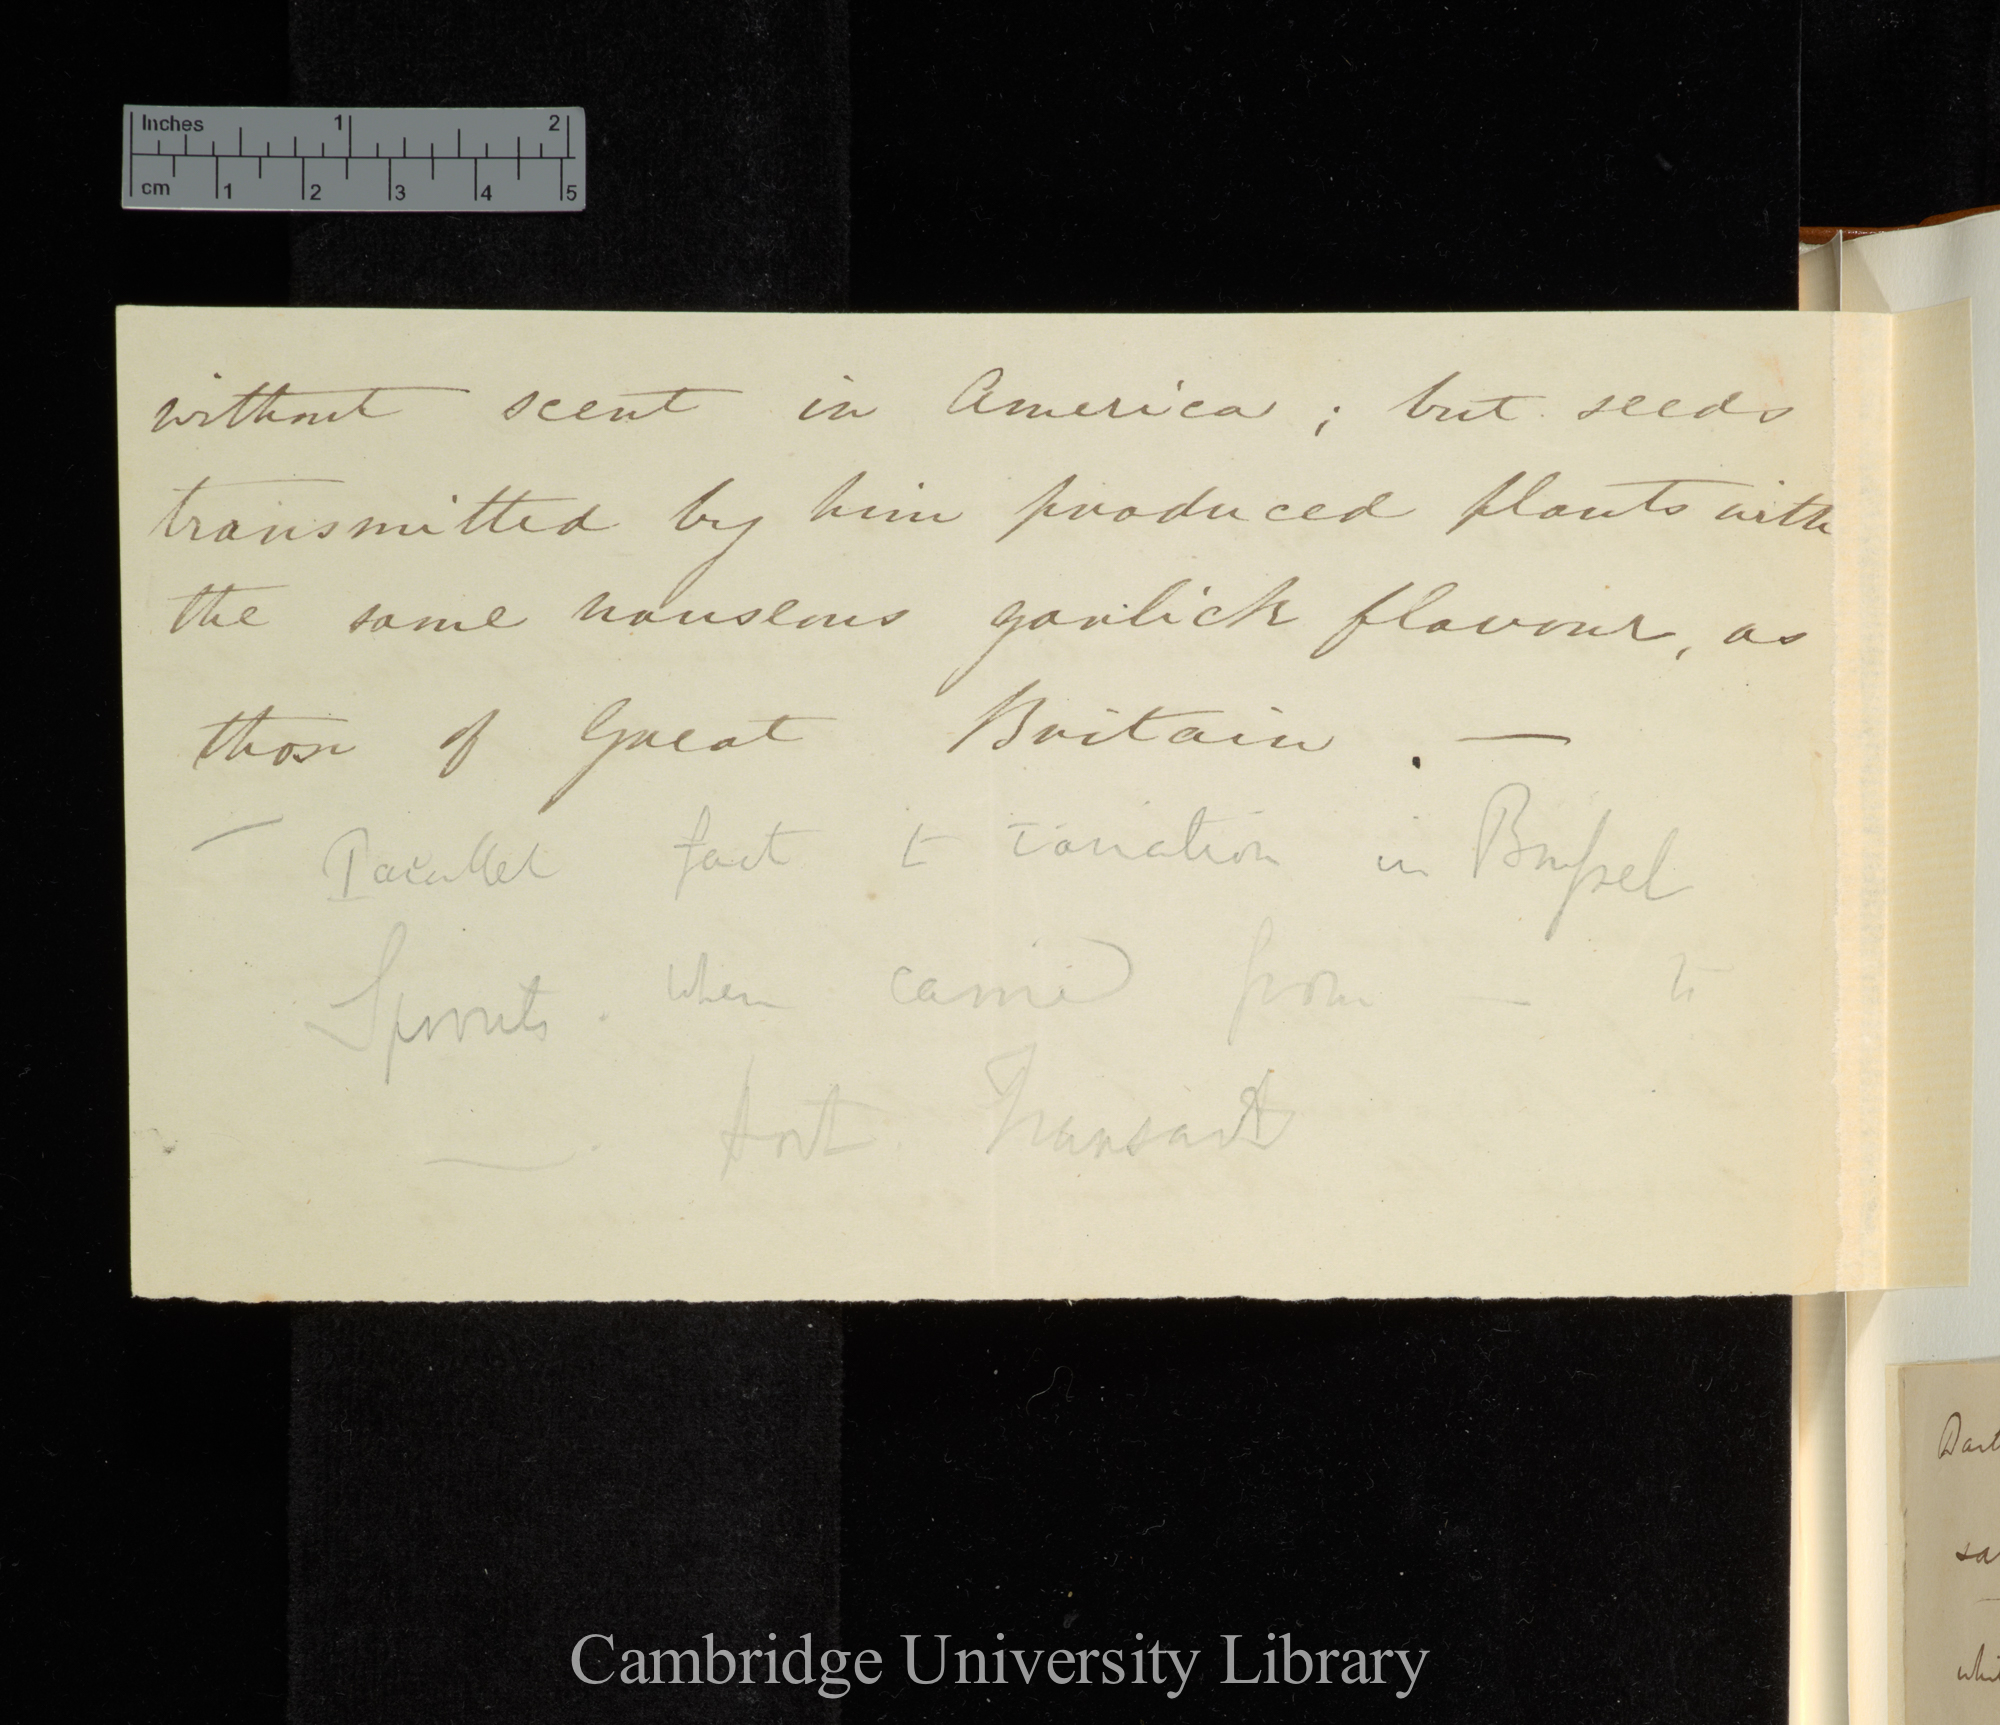 Inches 1 2
cm 1 2 3 4 5
without scent in America; but seeds
transmitted by him produced plants with
the same nauseous garlick flavour, as
those of Great Britain. —
— Parallel fact to variation in Brussel
Sprouts. when carried from — to
—. Hort Transact
Dart
sa
whi
Cambridge University Library